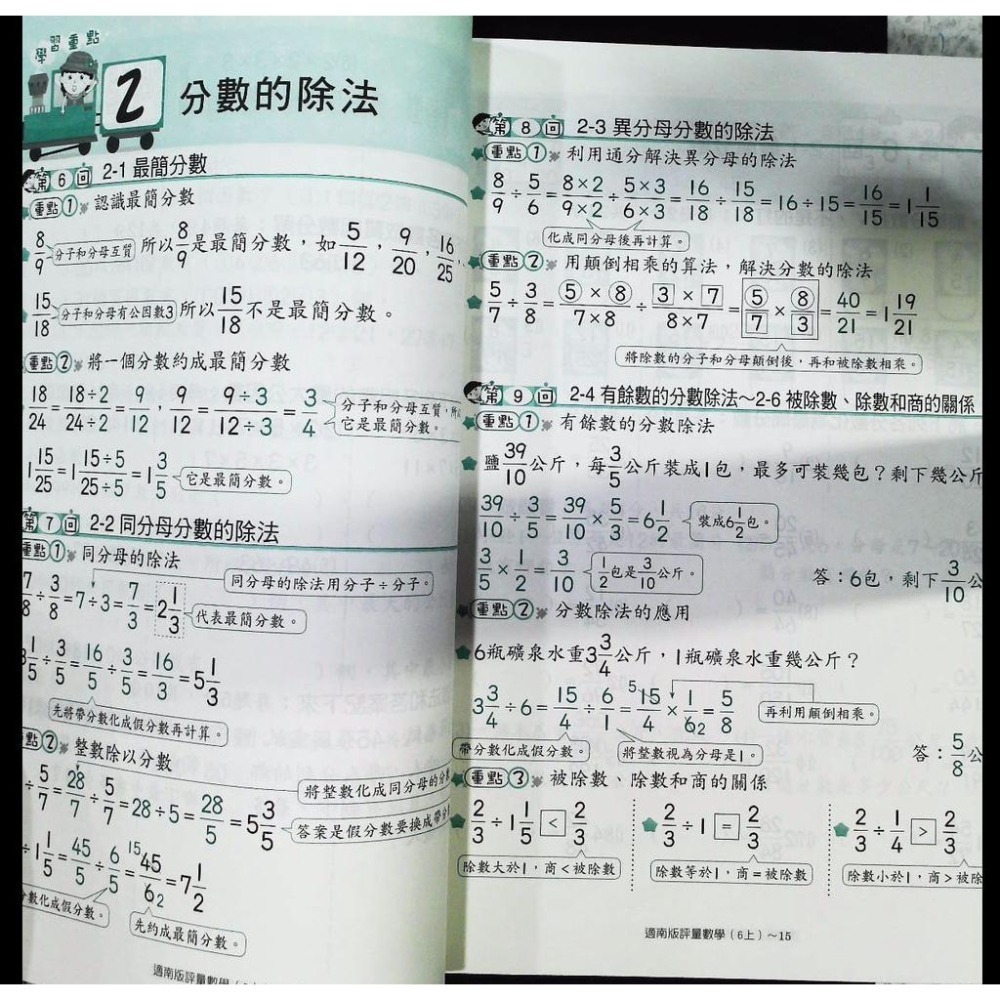 學習重點
2 分數的除法
第6回 2-1 最簡分數
重點① 認識最簡分數
8/9 分子和分母互質 所以 8/9 是最簡分數,如 5/12,9/20,16/25,
15/18 分子和分母有公因數3 所以 15/18 不是最簡分數。
重點② 將一個分數約成最簡分數
18/24=18÷2/24÷2=9/12,9/12=9÷3/12÷3=3/4 分子和分母互質,所
它是最簡分數。
1 15/25=1 15÷5/25÷5=1 3/5 它是最簡分數。
第7回 2-2 同分母分數的除法
重點① 同分母的除法
同分母的除法用分子÷分子。
7/8÷3/8=7÷3=7/3=2 1/3 代表最簡分數。
1/5÷3/5=16/5÷3/5=16/3=5 1/3
先將帶分數化成假分數再計算。
重點② 整數除以分數
將整數化成同分母的
÷5/7=28/7÷5/7=28÷5=28/5=5 3/5 答案是假分數要換成帶
÷1 1/5=45/5÷6/5=15 45/6 2=7 1/2
數化成假分數。
先約成最簡分數。
適南版評量數學(6
第8回 2-3 異分母分數的除法
重點① 利用通分解決異分母的除法
8/9÷5/6=8×2/9×2÷5×3/6×3=16/18÷15/18=16÷15=16/15=1 1/15
化成同分母後再計算。
重點② 用顛倒相乘的算法,解決分數的除法
5/7÷3/8=⑤×⑧/7×8÷3×7/8×7=⑤/7×⑧/3=40/21=1 19/21
將除數的分子和分母顛倒後,再和被除數相乘。
第9回 2-4 有餘數的分數除法~2-6 被除數、除數和商的關係
重點① 有餘數的分數除法
鹽 39/10 公斤,每 3/5 公斤裝成1包,最多可裝幾包?剩下幾公斤
39/10÷3/5=39/10×5/3=6 1/2 裝成6 1/2包。
3/5×1/2=3/10 1/2包是3/10公斤。 答:6包,剩下 3/10 公
重點② 分數除法的應用
6瓶礦泉水重3 3/4公斤,1瓶礦泉水重幾公斤?
3 3/4÷6=15/4÷6/1=5 15/4×1/6 2=5/8 再利用顛倒相乘。
帶分數化成假分數。 將整數視為分母是1。 答:5/8公
重點③ 被除數、除數和商的關係
2/3÷1 1/5 < 2/3 2/3÷1 = 2/3 2/3÷1/4 > 2/3
除數大於1,商<被除數 除數等於1,商=被除數 除數小於1,商>被除
適南版評量數學(6上)~15